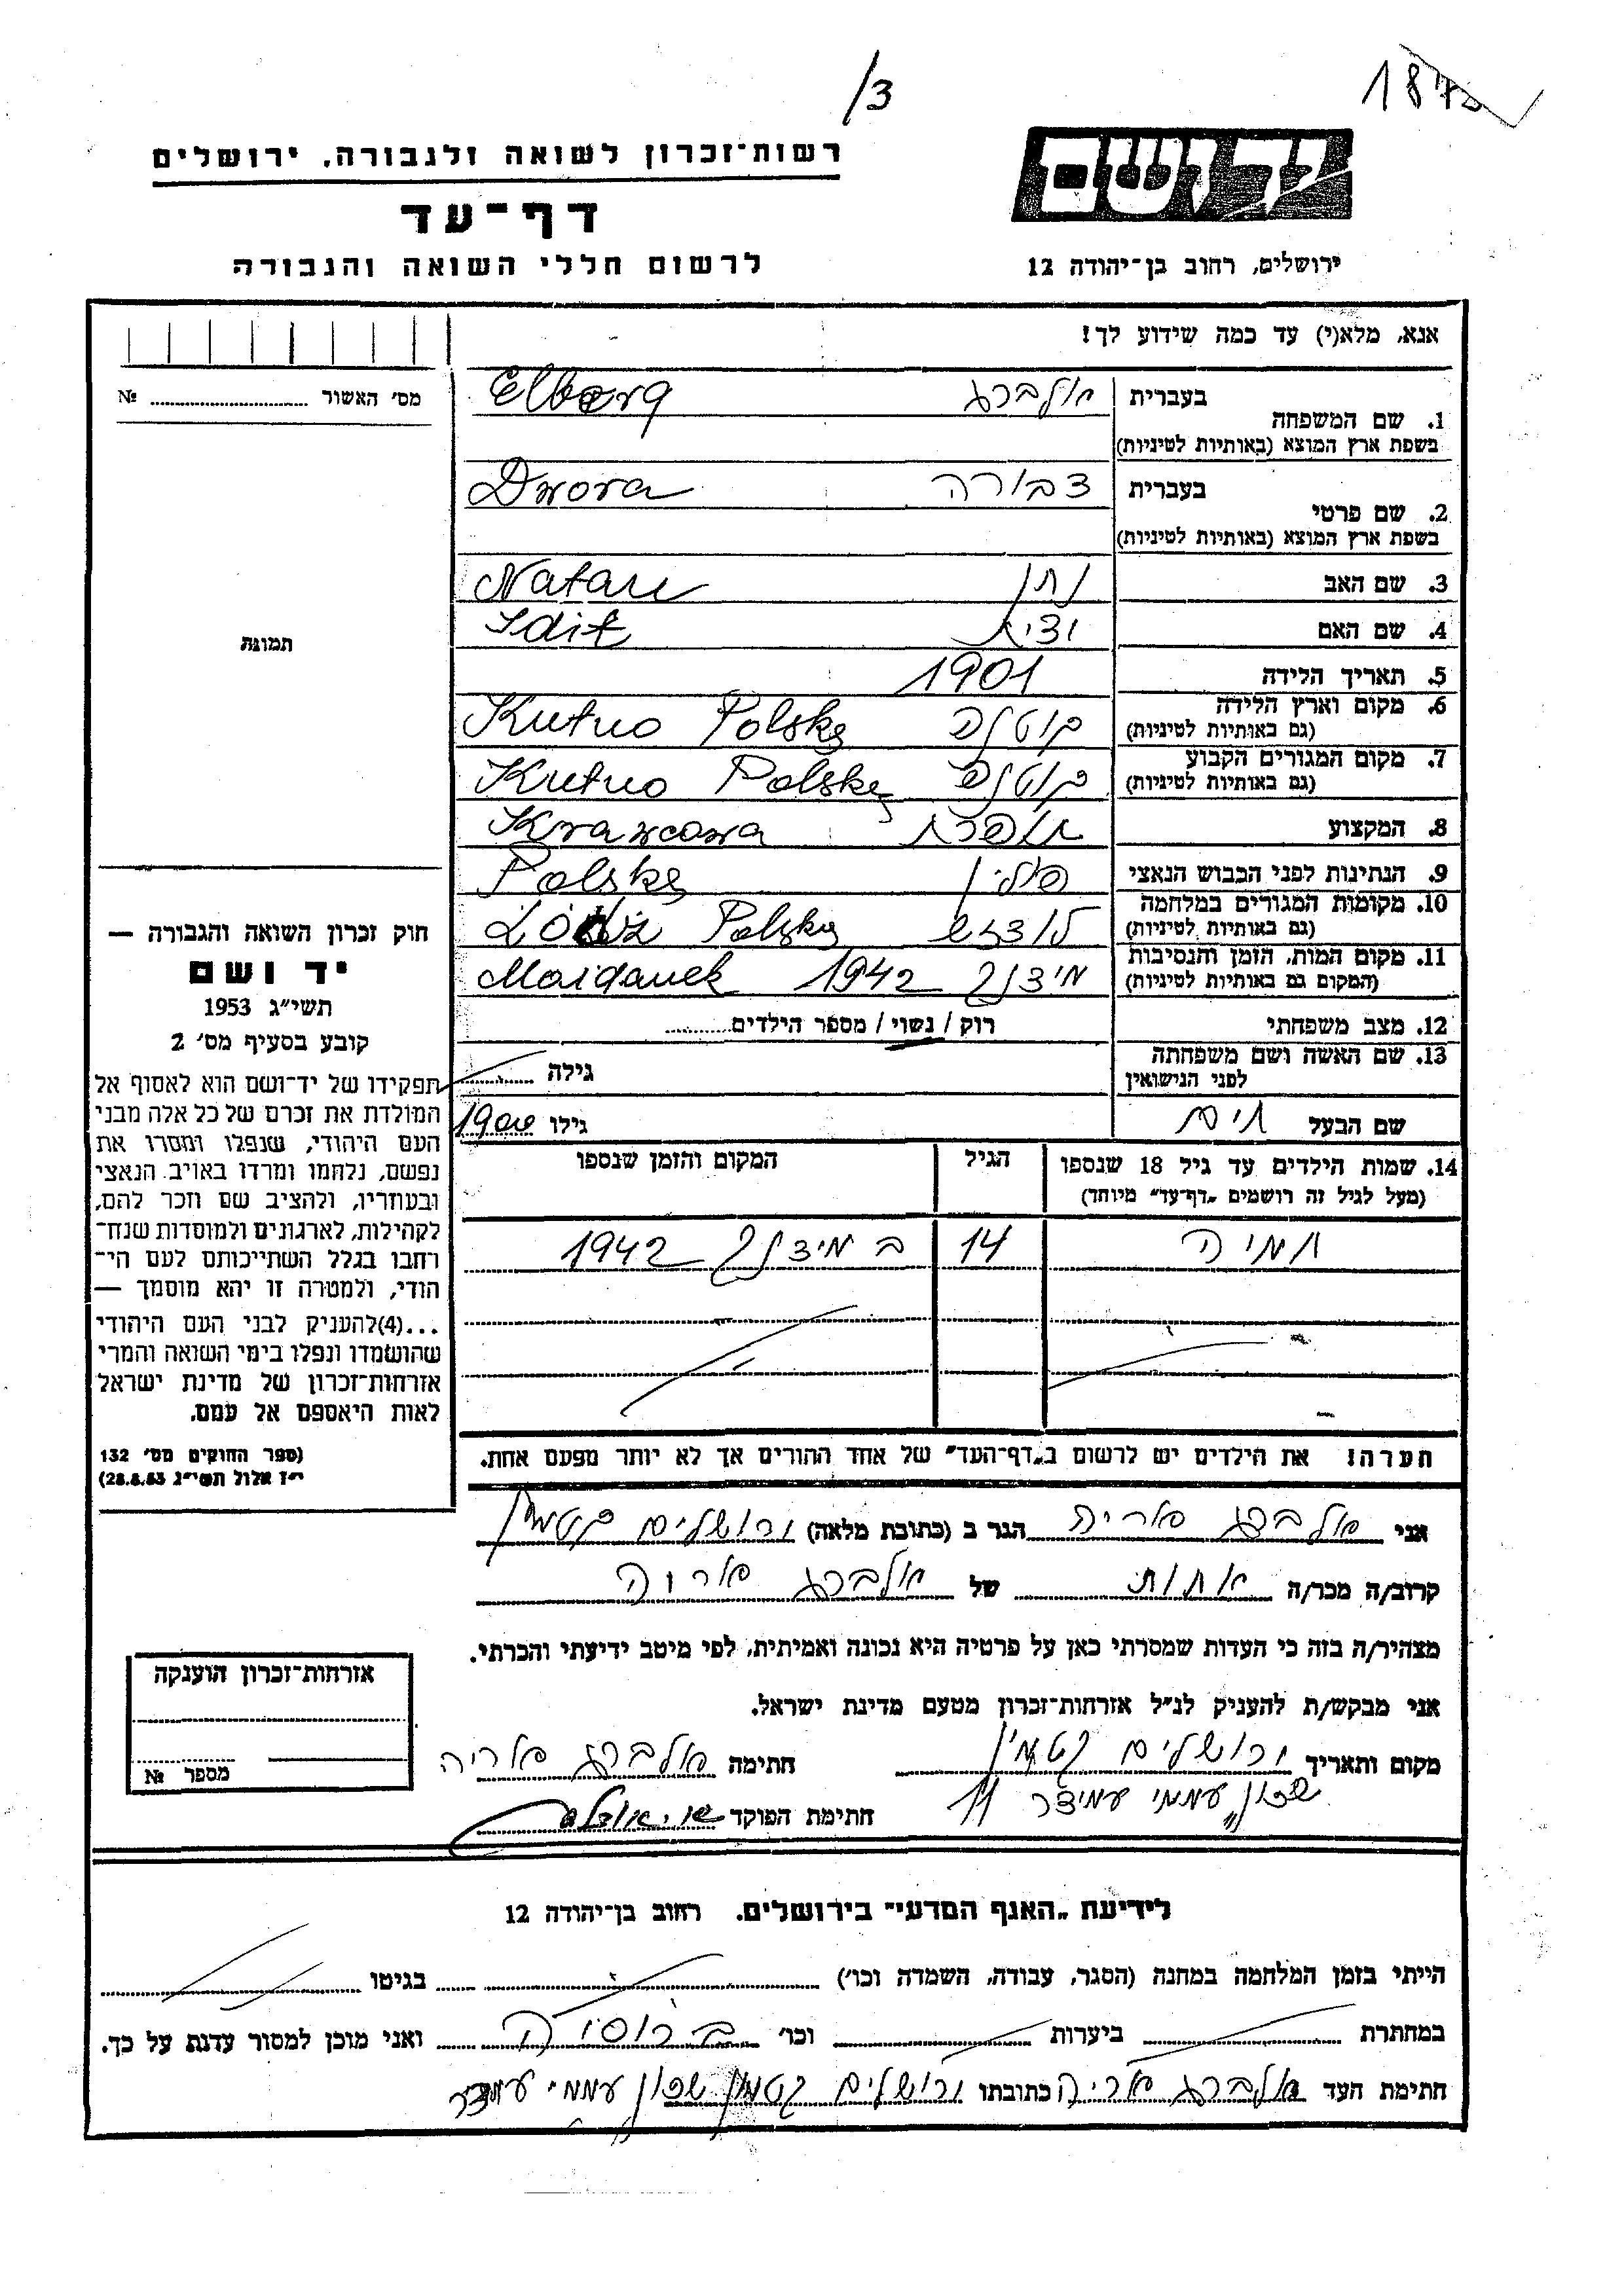 /3
רשות־זכרון לשואה ולגבורה, ירושלים
דף־עד
לרשום חללי השואה והגבורה
יד ושם
ירושלים, רחוב בן־יהודה 12
אנא, מלא(י) עד כמה שידוע לך!
מס׳ האשור № 
תמונה
1. שם המשפחה
בעברית אלברג Elberg
בשפת ארץ המוצא (באותיות לטיניות)
2. שם פרטי
בעברית דבורה Dwora
בשפת ארץ המוצא (באותיות לטיניות)
3. שם האב נתן Natan
4. שם האם Idit
5. תאריך הלידה 1901
6. מקום וארץ הלידה Kutno Polska
(גם באותיות לטיניות)
7. מקום המגורים הקבוע Kutno Polska
(גם באותיות לטיניות)
8. המקצוע תופרת Krawcowa
9. הנתינות לפני הכבוש הנאצי פולין Polska
10. מקומות המגורים במלחמה Łódź Polska
(גם באותיות לטיניות)
11. מקום המות, הזמן והנסיבות מידנק 1942 Maidanek
(המקום גם באותיות לטיניות)
12. מצב משפחתי רוק / נשוי / מספר הילדים
13. שם האשה ושם משפחתה
לפני הנישואין גילה
שם הבעל חיים גילו 1900
14. שמות הילדים עד גיל 18 שנספו הגיל המקום והזמן שנספו
(מעל לגיל זה רושמים „דף־עד״ מיוחד)
14 ב מידנק 1942
הערה! את הילדים יש לרשום ב„דף־העד״ של אחד ההורים אך לא יותר מפעם אחת.
חוק זכרון השואה והגבורה —
יד ושם
תשי״ג 1953
קובע בסעיף מס׳ 2
תפקידו של יד־ושם הוא לאסוף אל
המולדת את זכרם של כל אלה מבני
העם היהודי, שנפלו ומסרו את
נפשם, נלחמו ומרדו באויב הנאצי
ובעוזריו, ולהציב שם וזכר להם,
לקהילות, לארגונים ולמוסדות שנח־
רחבו בגלל השתייכותם לעם הי־
הודי, ולמטרה זו יהא מוסמך —
...(4)להעניק לבני העם היהודי
שהושמדו ונפלו בימי השואה והמרי
אזרחות־זכרון של מדינת ישראל
לאות היאספם אל עמם.
(ספר החוקים מס׳ 132
י״ז אלול תשי״ג 28.8.53)
אני אלברג אריה הגר ב (כתובת מלאה) ירושלים קטמון
קרוב/ה מכר/ה של אלברג
מצהיר/ה בזה כי העדות שמסרתי כאן על פרטיה היא נכונה ואמיתית, לפי מיטב ידיעתי והכרתי.
אני מבקש/ת להעניק לנ״ל אזרחות־זכרון מטעם מדינת ישראל.
מקום ותאריך ירושלים קטמון חתימה אלברג אריה
שכון עממי עמידר 11
חתימת הפוקד
אזרחות־זכרון הוענקה
מספר №
לידיעת „האגף המדעי״ בירושלים, רחוב בן־יהודה 12
הייתי בזמן המלחמה במחנה (הסגר, עבודה, השמדה וכו׳) בגיטו
במחתרת ביערות וכו׳ ברוסיה ואני מוכן למסור עדות על כך.
חתימת העד אלברג אריה כתובתו ירושלים קטמון שכון עממי עמידר